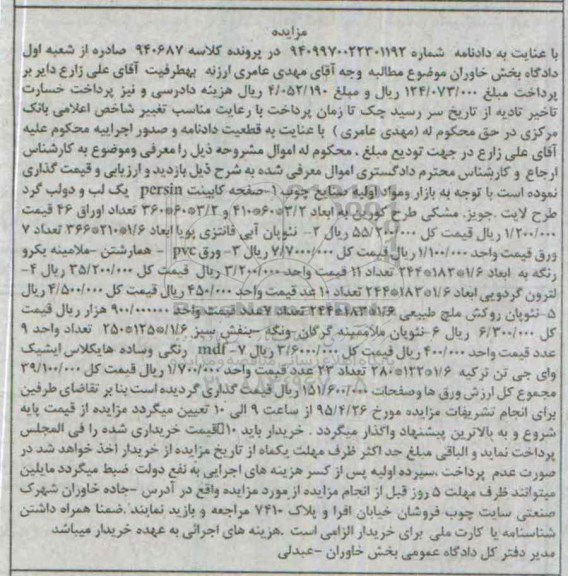 مزایده
با عنایت به دادنامه شماره ۹۴۰۹۹۷۰۰۲۲۳۰۱۱۹۲ در پرونده کلاسه ۹۴۰۶۸۷ صادره از شعبه اول
دادگاه بخش خاوران موضوع مطالبه وجه آقای مهدی عامری ارزنه بهطرفیت آقای علی زارع دایر بر
پرداخت مبلغ ۱۲۴/۰۷۳/۰۰۰ ریال و مبلغ ۴/۰۵۲/۱۹۰ ریال هزینه دادرسی و نیز پرداخت خسارت
تاخیر تادیه از تاریخ سر رسید چک تا زمان پرداخت با رعایت مناسب تغییر شاخص اعلامی بانک
مرکزی در حق محکوم له (مهدی عامری ) با عنایت به قطعیت دادنامه و صدور اجراییه محکوم علیه
آقای علی زارع در جهت تودیع مبلغ . محکوم له اموال مشروحه ذیل را معرفی وموضوع به کارشناس
ارجاع و کارشناس محترم دادگستری اموال معرفی شده به شرح ذیل بازدید و ارزیابی و قیمت گذاری
نموده است با توجه به بازار ومواد اولیه صنایع چوب ۱-صفحه کابینت persin یک لب و دولب گرد
طرح لایت .جویز. مشکی طرح کورین به ابعاد ۳/۲*۶۰*۴۱۰ و ۳/۲*۶۰*۳۶۰ تعداد اوراق ۴۶ قیمت
۱/۲۰۰/۰۰۰ ریال قیمت کل ۵۵/۲۰۰/۰۰۰ ریال ۲- نئوپان آبی فانتزی پویا ابعاد ۱/۶*۲۱۰*۳۶۶ تعداد ۷
ورق قیمت واحد ۱/۱۰۰/۰۰۰ ریال قیمت کل ۷/۷۰۰/۰۰۰ ریال ۳- ورق pvc - همارشتن -ملامینه یکرو
رنگه به ابعاد ۱/۶*۱۸۳*۲۴۴ تعداد ۱۱ قیمت واحد ۳/۲۰۰/۰۰۰ ریال قیمت کل ۳۵/۲۰۰/۰۰۰ ریال ۴-
لترون گردویی ابعاد ۱/۶*۱۸۳*۲۴۴ تعداد ۱۰ عد قیمت واحد ۴۵۰/۰۰۰ ریال قیمت کل ۴/۵۰۰/۰۰۰ ریال
۵-نئوپان روکش ملچ طبیعی ۱/۶*۱۸۳*۲۴۴ تعداد ۷عدد قیمت واحد ۹۰۰/۰۰۰۰۰۰ هزار ریال قیمت
کل ۶/۳۰۰/۰۰۰ ریال ۶-نئوپان ملامینه گرگان-ونگه -بنفش سبز ۱/۶*۱۲۵*۲۵۰ تعداد واحد ۹
عدد قیمت واحد ۴۰۰/۰۰۰ ریال قیمت کل ۳/۶۰۰/۰۰۰ ریال ۷- mdf رنگی وساده هایگلاس ایشیک
وای جی تن ترکیه ۱/۶*۱۲۲*۲۸۰ تعداد ۲۳ عدد قیمت واحد ۱/۷۰۰/۰۰۰ ریال قیمت کل ۳۹/۱۰۰/۰۰۰
مجموع کل ارزش ورق ها وصفحات ۱۵۱/۶۰۰/۰۰۰ ریال قیمت گذاری گردیده است بنا بر تقاضای طرفین
برای انجام تشریفات مزایده مورخ ۹۵/۴/۲۶ از ساعت ۹ الی ۱۰ تعیین میگردد مزایده از قیمت پایه
شروع و به بالاترین پیشنهاد واگذار میگردد . خریدار باید ۱۰٪قیمت خریداری شده را فی المجلس
پرداخت نماید و الباقی مبلغ حد اکثر ظرف مهلت یکماه از تاریخ مزایده از خریدار اخذ خواهد شد در
صورت عدم پرداخت ،سپرده اولیه پس از کسر هزینه های اجرایی به نفع دولت ضبط میگردد مایلین
میتوانند ظرف مهلت ۵ روز قبل از انجام مزایده از مورد مزایده واقع در آدرس -جاده خاوران شهرک
صنعتی سایت چوب فروشان خیابان افرا و پلاک ۷۴۱۰ مراجعه و بازید نمایند.ضمنا همراه داشتن
شناسنامه یا کارت ملی برای خریدار الزامی است .هزینه های اجرائی به عهده خریدار میباشد
مدیر دفتر کل دادگاه عمومی بخش خاوران -عبدلی